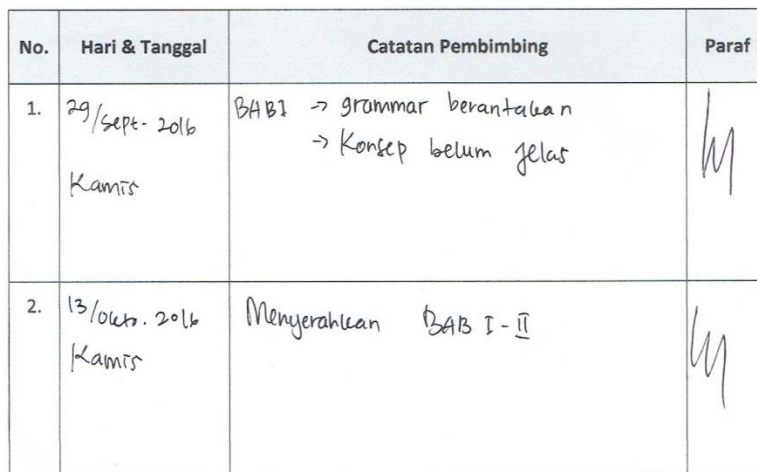 No. Hari & Tanggal Catatan Pembimbing Paraf
1. 29/Sept. 2016 BAB I -> grammar berantakan
-> Konsep belum jelas
Kamis
2. 13/Okto. 2016 Menyerahkan BAB I - II
Kamis